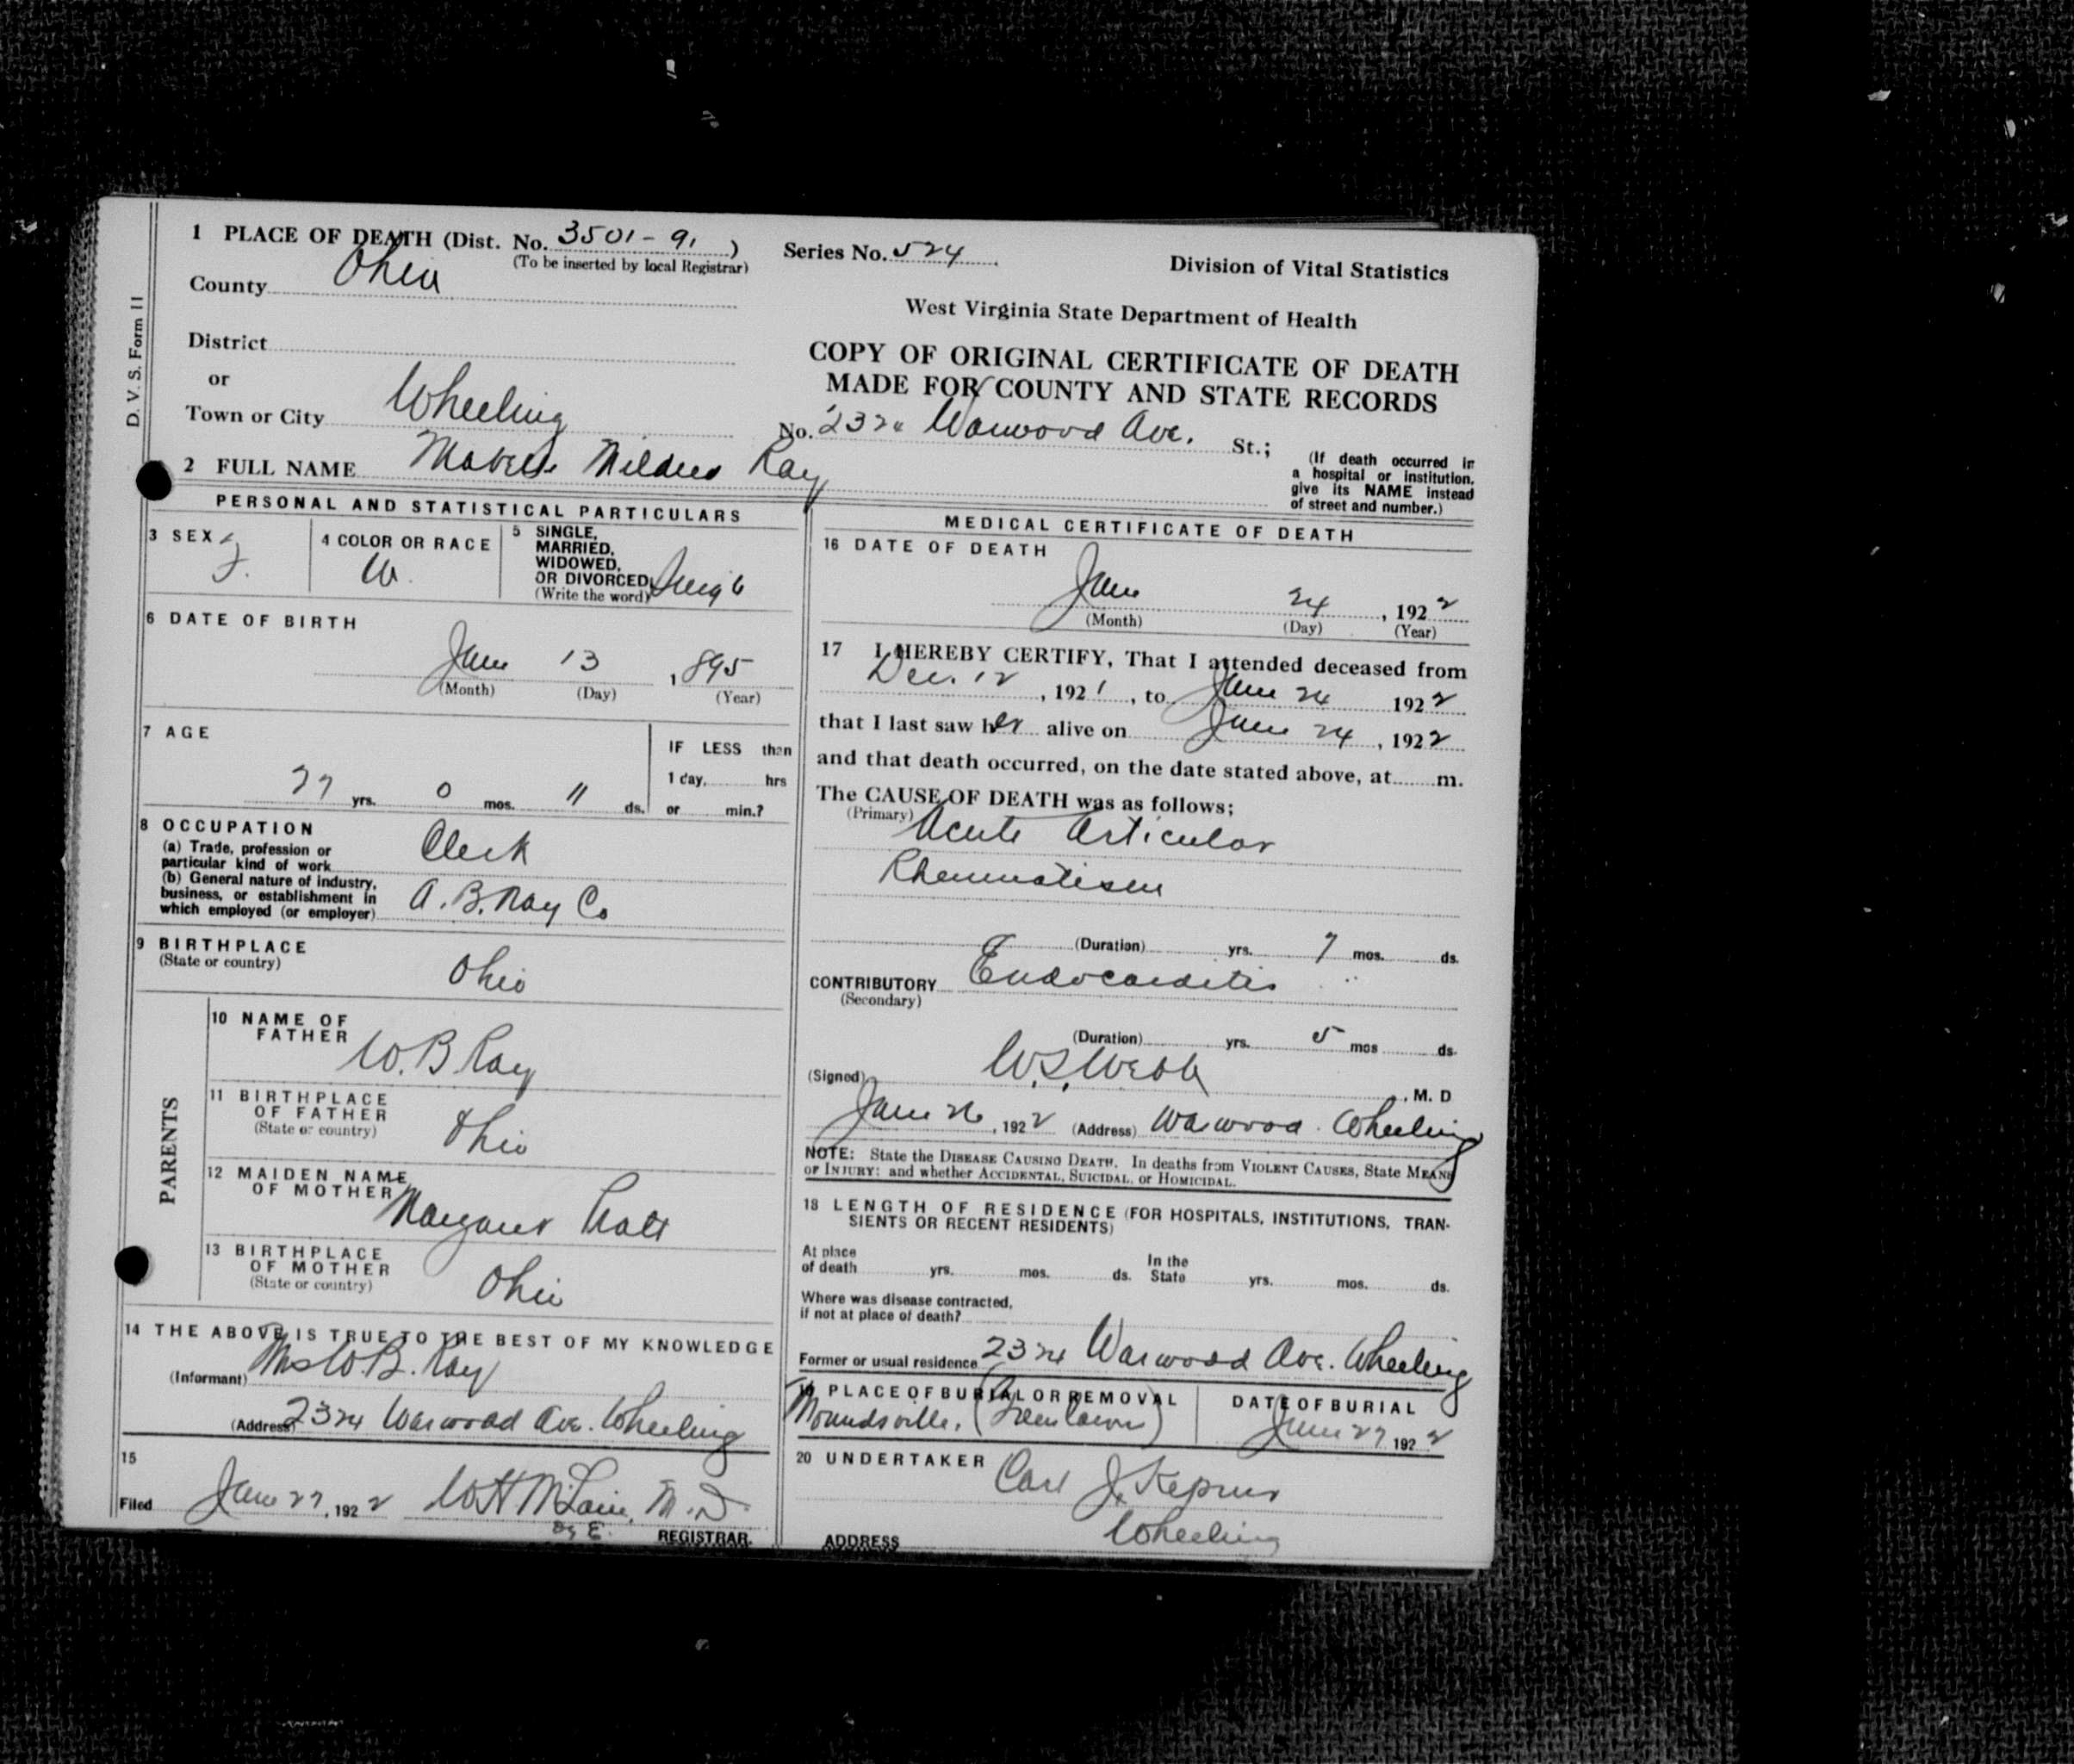 D. V. S. Form 11
1 PLACE OF DEATH (Dist. No. 3501-91 )
(To be inserted by local Registrar)
Series No. 524
Division of Vital Statistics
County Ohio
West Virginia State Department of Health
District
COPY OF ORIGINAL CERTIFICATE OF DEATH
MADE FOR COUNTY AND STATE RECORDS
or
Town or City Wheeling
No. 2324 Warwood Ave. St.;
(If death occurred in
a hospital or institution,
give its NAME instead
of street and number.)
2 FULL NAME Mildred Ray
PERSONAL AND STATISTICAL PARTICULARS
3 SEX F.
4 COLOR OR RACE W.
5 SINGLE,
MARRIED,
WIDOWED,
OR DIVORCED
(Write the word) Single
6 DATE OF BIRTH
June 13, 1895
(Month) (Day) (Year)
7 AGE
27 yrs. 0 mos. 11 ds.
IF LESS than
1 day, hrs
or min.?
8 OCCUPATION
(a) Trade, profession or
particular kind of work Clerk
(b) General nature of industry,
business, or establishment in
which employed (or employer) A. B. Ray Co
9 BIRTHPLACE
(State or country) Ohio
PARENTS
10 NAME OF
FATHER W. B. Ray
11 BIRTHPLACE
OF FATHER
(State or country) Ohio
12 MAIDEN NAME
OF MOTHER Margaret
13 BIRTHPLACE
OF MOTHER
(State or country) Ohio
14 THE ABOVE IS TRUE TO THE BEST OF MY KNOWLEDGE
(Informant) Mrs W. B. Ray
(Address) 2324 Warwood Ave. Wheeling
15
Filed June 27, 1922 W H McLain, M.D.
REGISTRAR.
MEDICAL CERTIFICATE OF DEATH
16 DATE OF DEATH
June 24, 1922
(Month) (Day) (Year)
17 I HEREBY CERTIFY, That I attended deceased from
Dec. 12, 1921, to June 24 1922
that I last saw her alive on June 24, 1922
and that death occurred, on the date stated above, at m.
The CAUSE OF DEATH was as follows;
(Primary) Acute Articular
Rheumatism
(Duration) yrs. 7 mos. ds.
CONTRIBUTORY Endocarditis
(Secondary)
(Duration) yrs. 5 mos ds.
(Signed) W. S. Webb, M. D
June 26, 1922 (Address) Warwood. Wheeling
NOTE: State the DISEASE CAUSING DEATH. In deaths from VIOLENT CAUSES, State MEANS
OF INJURY; and whether ACCIDENTAL, SUICIDAL, or HOMICIDAL.
18 LENGTH OF RESIDENCE (FOR HOSPITALS, INSTITUTIONS, TRAN-
SIENTS OR RECENT RESIDENTS)
At place
of death yrs. mos. ds.
In the
State yrs. mos. ds.
Where was disease contracted,
if not at place of death?
Former or usual residence 2324 Warwood Ave. Wheeling
19 PLACE OF BURIAL OR REMOVAL
Moundsville, (Greenlawn)
DATE OF BURIAL
June 27 1922
20 UNDERTAKER Carl J.
ADDRESS Wheeling